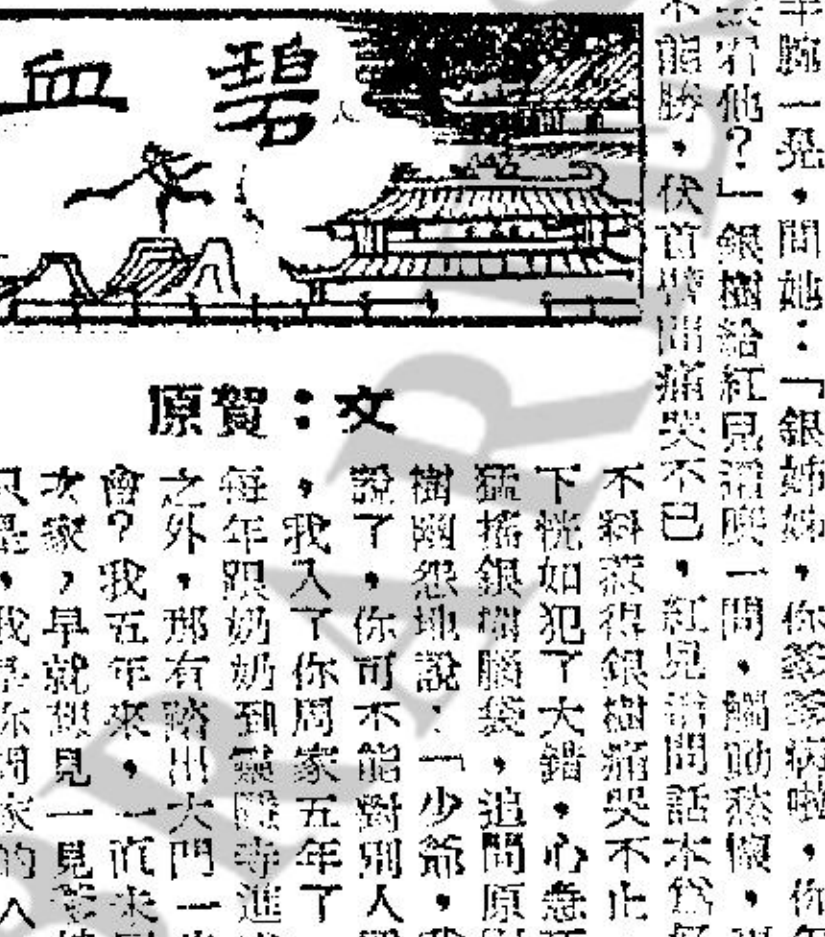 一晃,問她:「銀姊姊,你爹爹病啦,你
看他?」銀樹給紅兒這麼一問,觸動愁懷,
不能勝,伏首臂間痛哭不已,紅兒問話本為
碧血
文:賀原
不料惹得銀樹痛哭不止
下恍如犯了大錯,心急
猛搖銀樹腦袋,追問原
樹幽怨地說:「少爺,我
說了,你可不能對別人
,我入了你周家五年了
每年跟奶奶到靈隱寺進
之外,那有踏出大門一
會?我五年來,一直未
次家,早就想見一見爹
只是,我是你周家的人